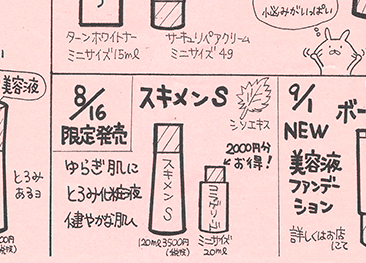 小悩みがいっぱい
ターンホワイトナー
ミニサイズ15ml
サーキュリペアクリーム
ミニサイズ 4g
美容液
とろみ
あるヨ
8/16
限定発売
ゆらぎ肌に
とろみ化粧液
健やかな肌へ
スキメンS
シソエキス
2000円分
お得!
スキメンS
120ml 3500円
(税抜)
ミニサイズ
20ml
9/1
NEW
ボー
美容液
ファンデー
ション
詳しくはお店
にて